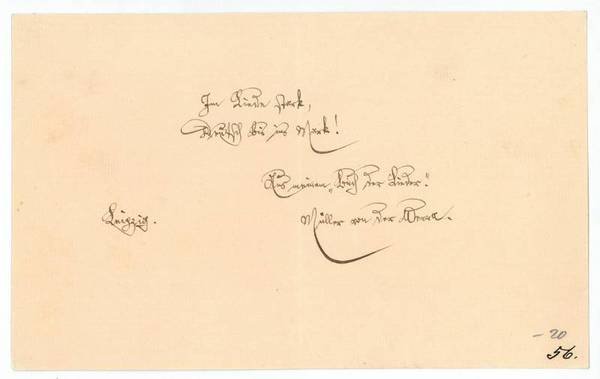 Im Liede stark,
Deutsch bis ins Mark!
Aus meinem „Buch der Lieder".
Leipzig.
Müller von der Werra.
– 20
56.